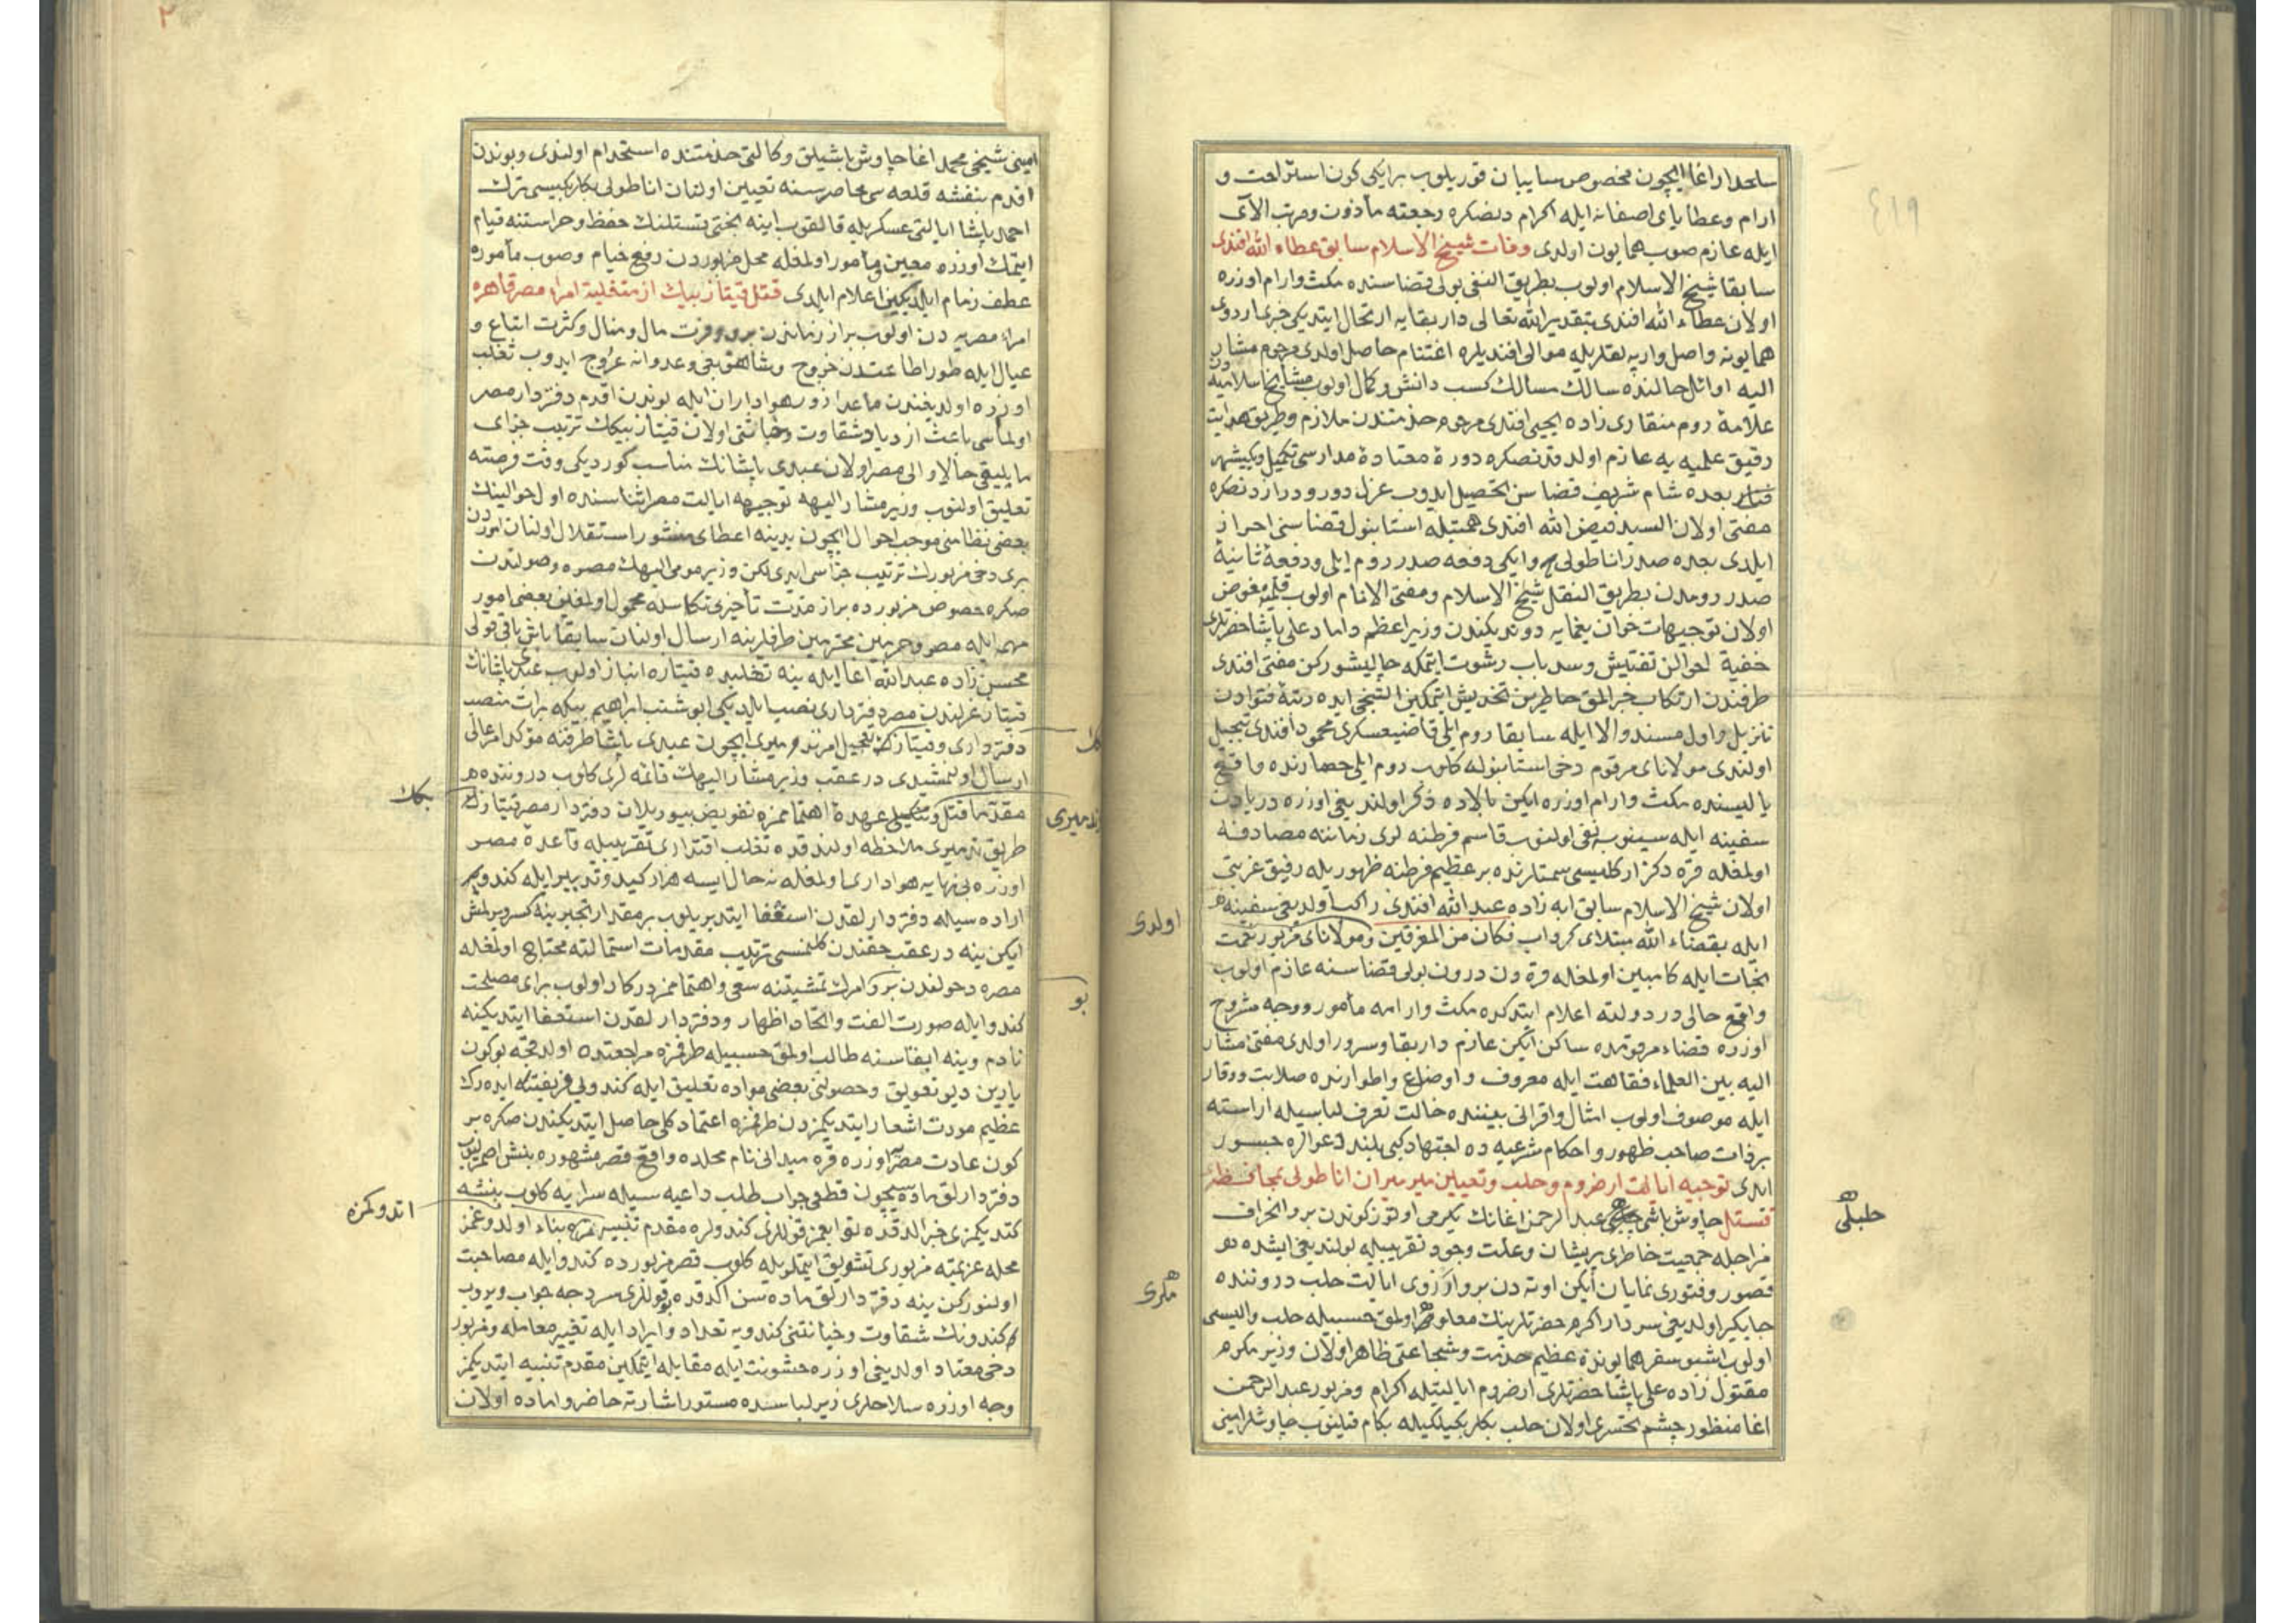 سلحدار اغا ایچون مخصوص سایبان قوریلوب بر ایکی کون استراحت و
ارام وعطایای اصفانه ایله اکرام دنصکره رجعته مأذون ومرتب الآی
ایله عازم صوب همایون اولدی وفات شیخ الاسلام سابق عطاء الله افندی
سابقا شیخ الاسلام اولوب بطریق النفی بولی قضاسنده مکث وارام اوزره
اولان عطاء الله افندی بتقدیر الله تعالی دار بقایه ارتحال ایتدیکی خبری اردوی
همایونه واصل واربه لقلریله موالی افندیلره اغتنام حاصل اولدی مرحوم مشار
الیه اوائل حالنده سالك مسالك کسب دانش وکمال اولوب مشایخ اسلامیه دن
علامهٔ روم منقاری زاده یحیی افندی مرحوم خدمتندن ملازم وطریق هدایت
رفیق علمیه یه عازم اولدقدنصکره دورهٔ معتادهٔ مدارسی تکمیل ویکیشهر
فنار بعده شام شریف قضاسن تحصیل ایدوب عزل دور ودرازدنصکره
مفتی اولان السید فیض الله افندی همتیله استانبول قضاسنی احراز
ایلدی بعده صدر اناطولی وایکی دفعه صدر روم ایلی ودفعهٔ ثانیهٔ
صدر رومدن بطریق النقل شیخ الاسلام ومفتی الانام اولوب قلمنه مفوض
اولان توجیهات خوان یغمایه دوندیکندن وزیر اعظم داماد علی پاشا حضرتلری
خفیة احوالن تفتیش وسد باب رشوت ایتمکه چالیشورکن مفتی افندی
طرفندن ارتکاب جرالمق خاطرین تخدیش ایتمکین التیجی ایده رتبهٔ فتوادن
تنزیل واول مسند والا ایله سابقا روم ایلی قاضیعسکری محمود افندی تبجیل
اولندی مولانای مرقوم دخی استانبوله کلوب روم ایلی حصارنده واقع
یالیسنده مکث وارام اوزره ایکن بالاده ذکر اولندیغی اوزره دریادن
سفینه ایله سینوبه نفی اولنوب قاسم فرطنه لری زماننه مصادفه
اولمغله قره دکز ارکلیسی سمتلرنده بر عظیم فرطنه ظهوریله رفیق غربتی
اولان شیخ الاسلام سابق ابه زاده عبد الله افندی راکب اولدیغی سفینه
ایله بقضاء الله مبتلای کرداب فکان من المغرقین ومولانای مزبور نعمت
نجات ایله کامبین اولمغله قره دن درون بولی قضاسنه عازم اولوب
واقع حالی در دولته اعلام ایتدکده مکث وارامه مأمور ووجه مشروح
اوزره قضاء مرقومده ساکن ایکن عازم دار بقا وسرور اولدی مفتی مشار
الیه بین العلماء فقاهت ایله معروف واوضاع واطوارنده صلابت ووقار
ایله موصوف اولوب امثال واقرانی بیننده حالت تعرف لباسیله اراسته
بر ذات صاحب ظهور واحکام شرعیه ده اجتهاد کبی بلند دعوالره جسور
ایدی توجیه ایالت ارضروم وحلب وتعیین میر میران اناطولی بمحافظهٔ
تستل چاوش باشی عبد الرحمن اغانك یکرمی اوتوز کوندن برو انحراف
مزاجله جمعیت خاطری پریشان وعلت وجود تقریبیله بولندیغی ایشده
قصور وفتوری نمایان ایکن اوته دن برو ارزوی ایالت حلب دروننده
جایکیر اولدیغی سردار اکرم حضرتلرینك معلوملری اولمق حسبیله حلب والیسی
اولوب اشبو سفر همایونده عظیم خدمت وشجاعتی ظاهر اولان وزیر مکرم
مقتول زاده علی پاشا حضرتلری ارضروم ایالتیله اکرام ومزبور عبد الرحمن
اغا منظور چشم تحسری اولان حلب بکلربکیلکیله بکام قیلنوب چاوشلر امینی
اولدی
حلبلی
ملری
امینی شیخی محمد اغا چاوش باشیلق وکالتی خدمتنده استخدام اولندی وبوندن
اقدم بنفشه قلعه سی محاصره سنه تعیین اولنان اناطولی بکلربکیسی ترك
احمد پاشا ایالتی عسکریله قالقوب اینه بختی تستلنك حفظ وحراستنه قیام
ایتمك اوزره معیین ومأمور اولمغله محل مزبوردن رفع خیام وصوب مأموره
عطف زمام ایلدیکین اعلام ایلدی قتل قیتاز بیك از متغلبهٔ امراء مصر قاهره
امراء مصریه دن اولوب براز زماندن برو وفرت مال ومنال وکثرت اتباع و
عیال ایله طور اطاعتدن خروج وشاهق بغی وعدوانه عروج ایدوب تغلب
اوزره اولدیغندن ماعدا زور هواداران ایله بوندن اقدم دفتردار مصر
اولماسی باعث ازدیاد شقاوت وخیانتی اولان قیتاز بیکك ترتیب جزای
مایلیقی حالا والی مصر اولان عبدی پاشانك مناسب کوردیکی وقت فرصته
تعلیق اولنوب وزیر مشار الیهه توجیه ایالت مصر اثناسنده اول حوالینك
بعضی نظامنی موجب احوال ایچون یدینه اعطای منشور استقلال اولنان اموردن
بری دخی مزبورك ترتیب جزاسی ایدی لکن وزیر مومی الیهك مصره وصولندن
صکره خصوص مزبورده براز مدت تأخیری تکاسله محمول اولمغین بعضی امور
مهمه ایله مصر وحرمین محترمین طرفلرینه ارسال اولنان سابقا باش باقی قولی
محسن زاده عبد الله اغا ایله ینه تغلیبده قیتازه انباز اولوب عبدی پاشانك
قیتاز عزلندن مصر دفترداری نصب ایلدیکی ابو شنب ابراهیم بیکه برات منصب
دفترداری وقیتازك تعجیل امرنده میری ایچون عبدی پاشا طرفنه مؤکد امر عالی
ارسال اولنمشیدی در عقب وزیر مشار الیهك قائمه لری کلوب دروننده
مقدما قتل وتنکیلی عهدهٔ اهتمامزه تفویض بیوریلان دفتردار مصر قیتازك
طریق تدمیری ملاحظه اولندقده تغلب اقتداری تقریبیله قاعدهٔ مصر
اوزره بی نهایه هواداری اولمغله نه حال ایسه هزار کید وتدبیر ایله کندو
اراده سیله دفتردارلقدن استعفا ایتدیریلوب بر مقدار تجبرینه کسر ویرلمش
ایکن ینه در عقب حقندن کلنمسی ترتیب مقدمات استمالته محتاج اولمغله
مصره دخولندن برو امرك تمشیتنه سعی واهتمامز درکار اولوب برای مصلحت
کندو ایله صورت الفت واتحاد اظهار ودفتردارلقدن استعفا ایتدیکینه
نادم وینه ابقاسنه طالب اولمق حسبیله طرفمزه مراجعتده اولدقجه بوکون
یارین دیو تعویق وحصولنی بعضی مواده تعلیق ایله کندویی فریفته ایده رك
عظیم مودت اشعار ایتدیکمزدن طرفمزه اعتماد کلی حاصل ایتدیکندن صکره بر
کون عادت مصر اوزره قره میدانی نام محلده واقع قصر مشهوره بنش
دفتردارلق ماده سیچون قطعی جواب طلب داعیه سیله سرایه کلوب بنشه
کتدیکمزی خبر الدقده توابعمز قوللری کندولره مقدم تنبیهمزه بناء اولدوغمز
محله عزیمته مزبوری تشویق ایتملریله کلوب قصر مزبورده کندو ایله مصاحبت
اولنورکن ینه دفتردارلق ماده سن اکدقده بو قوللری سردجه جواب ویروب
کندونك شقاوت وخیانتنی کندویه تعداد وایراد ایله تغییر معامله ومزبور
دخی معتاد اولدیغی اوزره خشونت ایله مقابله ایتمکین مقدم تنبیه ایتدیکمز
وجه اوزره سلاحلری زیر لباسنده مستور اشارته حاضر واماده اولان
بکك
بو
اتدوکمزه